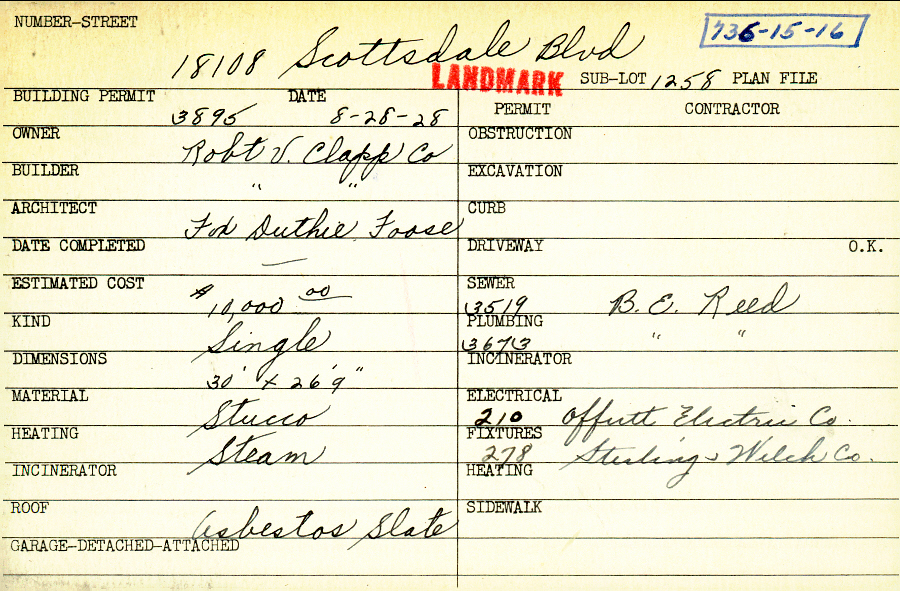 NUMBER-STREET
736-15-16
18108 Scottsdale Blvd
LANDMARK SUB-LOT 1258 PLAN FILE
BUILDING PERMIT 3895 DATE 8-28-28
PERMIT CONTRACTOR
OWNER Robt V. Clapp Co
OBSTRUCTION
BUILDER " "
EXCAVATION
ARCHITECT Fox Duthie Foose
CURB
DATE COMPLETED —
DRIVEWAY O.K.
ESTIMATED COST $10,000 00
SEWER 3519 B. E. Reed
KIND Single
PLUMBING 3673 " "
DIMENSIONS 30' x 26'9"
INCINERATOR
MATERIAL Stucco
ELECTRICAL 210 Offutt Electric Co.
HEATING Steam
FIXTURES 278 Sterling & Welch Co.
INCINERATOR
HEATING
ROOF Asbestos Slate
SIDEWALK
GARAGE-DETACHED-ATTACHED